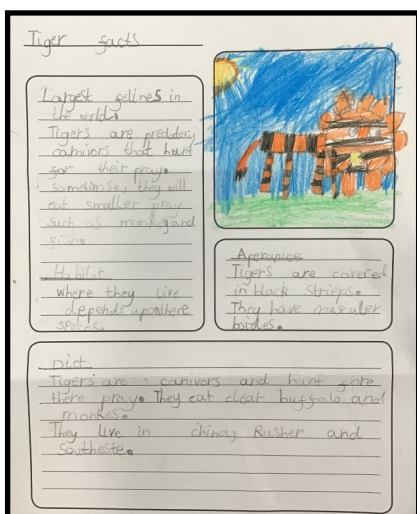 Tiger facts
Largest felines in
the world.
Tigers are predatory
carnivors that hunt
for their pray.
Sometimse, they will
eat smaller pray
such as monkey and
fish.
Habitat
where they live
depends upon there
speces.
Aperanice
Tigers are covered
in black strieps.
They have musculer
boides.
Diet
Tigers are canivors and hunt fore
there pray. They eat buffalo and
monkes.
They live in chinay Rusher and
Southeste.